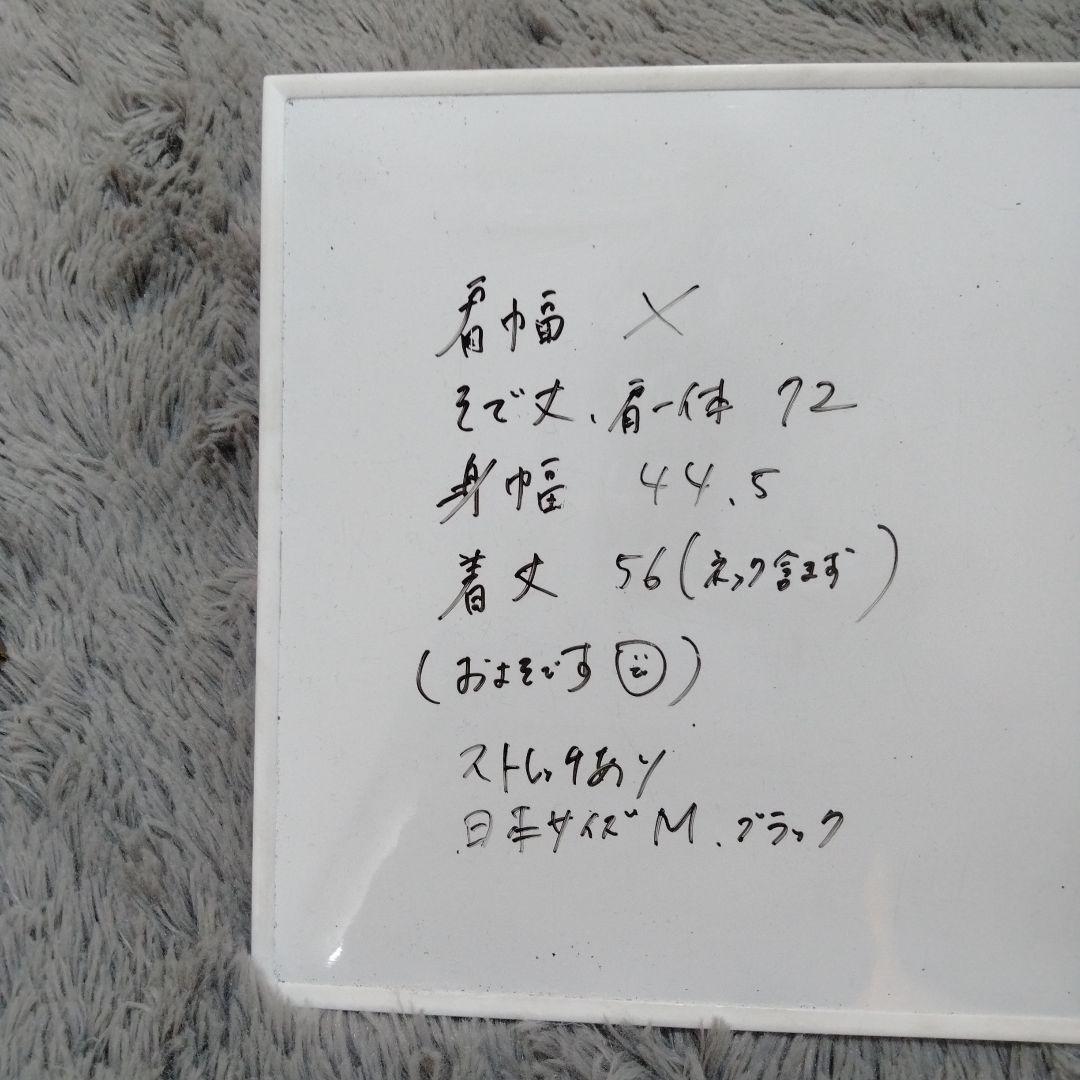 肩幅 ×
そで丈、肩一体 72
身幅 44.5
着丈 56(ネック含まず)
(およそです)
ストレッチあり
日本サイズM、ブラック